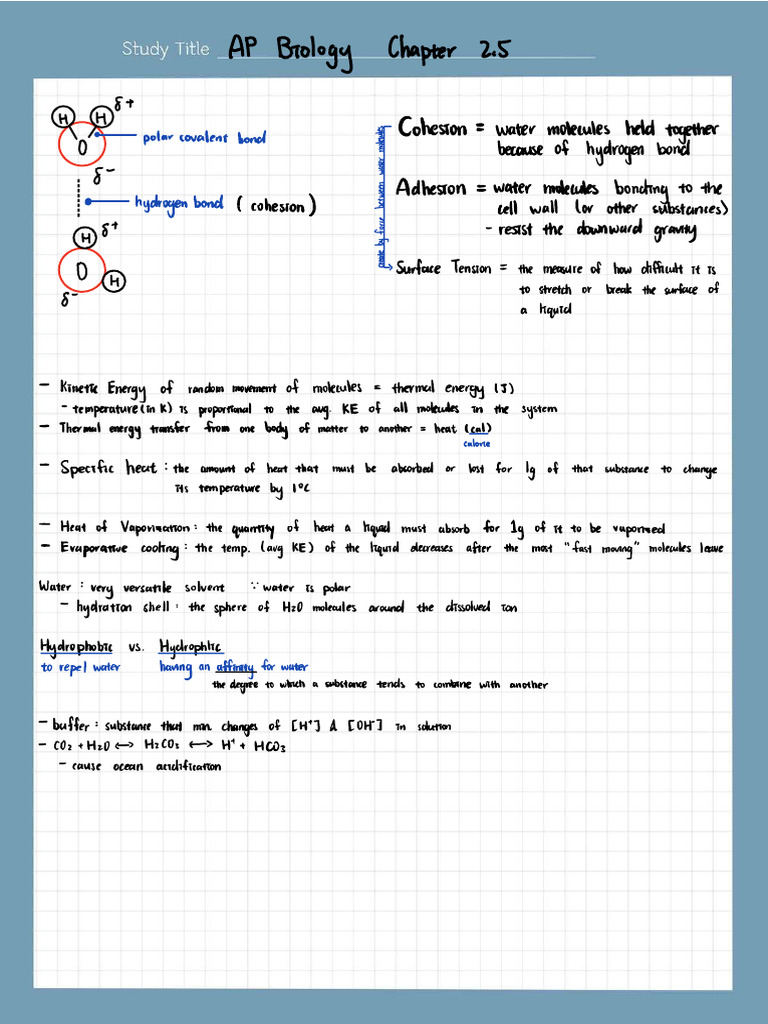 Study Title AP Biology Chapter 2.5
H H δ+
O
polar covalent bond
δ-
hydrogen bond ( cohesion )
H δ+
O
H
δ-
Cohesion = water molecules held together
because of hydrogen bond
Adhesion = water molecules bonding to the
cell wall (or other substances)
- resist the downward gravity
made by force between water molecules
Surface Tension = the measure of how difficult it is
to stretch or break the surface of
a liquid
- Kinetic Energy of random movement of molecules = thermal energy (J)
- temperature (in K) is proportional to the avg. KE of all molecules in the system
- Thermal energy transfer from one body of matter to another = heat (cal)
calorie
- Specific heat : the amount of heat that must be absorbed or lost for 1g of that substance to change
its temperature by 1°C
- Heat of Vaporization : the quantity of heat a liquid must absorb for 1g of it to be vaporized
- Evaporative cooling : the temp. (avg KE) of the liquid decreases after the most "fast moving" molecules leave
Water : very versatile solvent ∵ water is polar
- hydration shell : the sphere of H2O molecules around the dissolved ion
Hydrophobic vs. Hydrophlic
to repel water having an affinity for water
the degree to which a substance tends to combine with another
- buffer : substance that min. changes of [H+] & [OH-] in solution
- CO2 + H2O <-> H2CO3 <-> H+ + HCO3
- cause ocean acidification